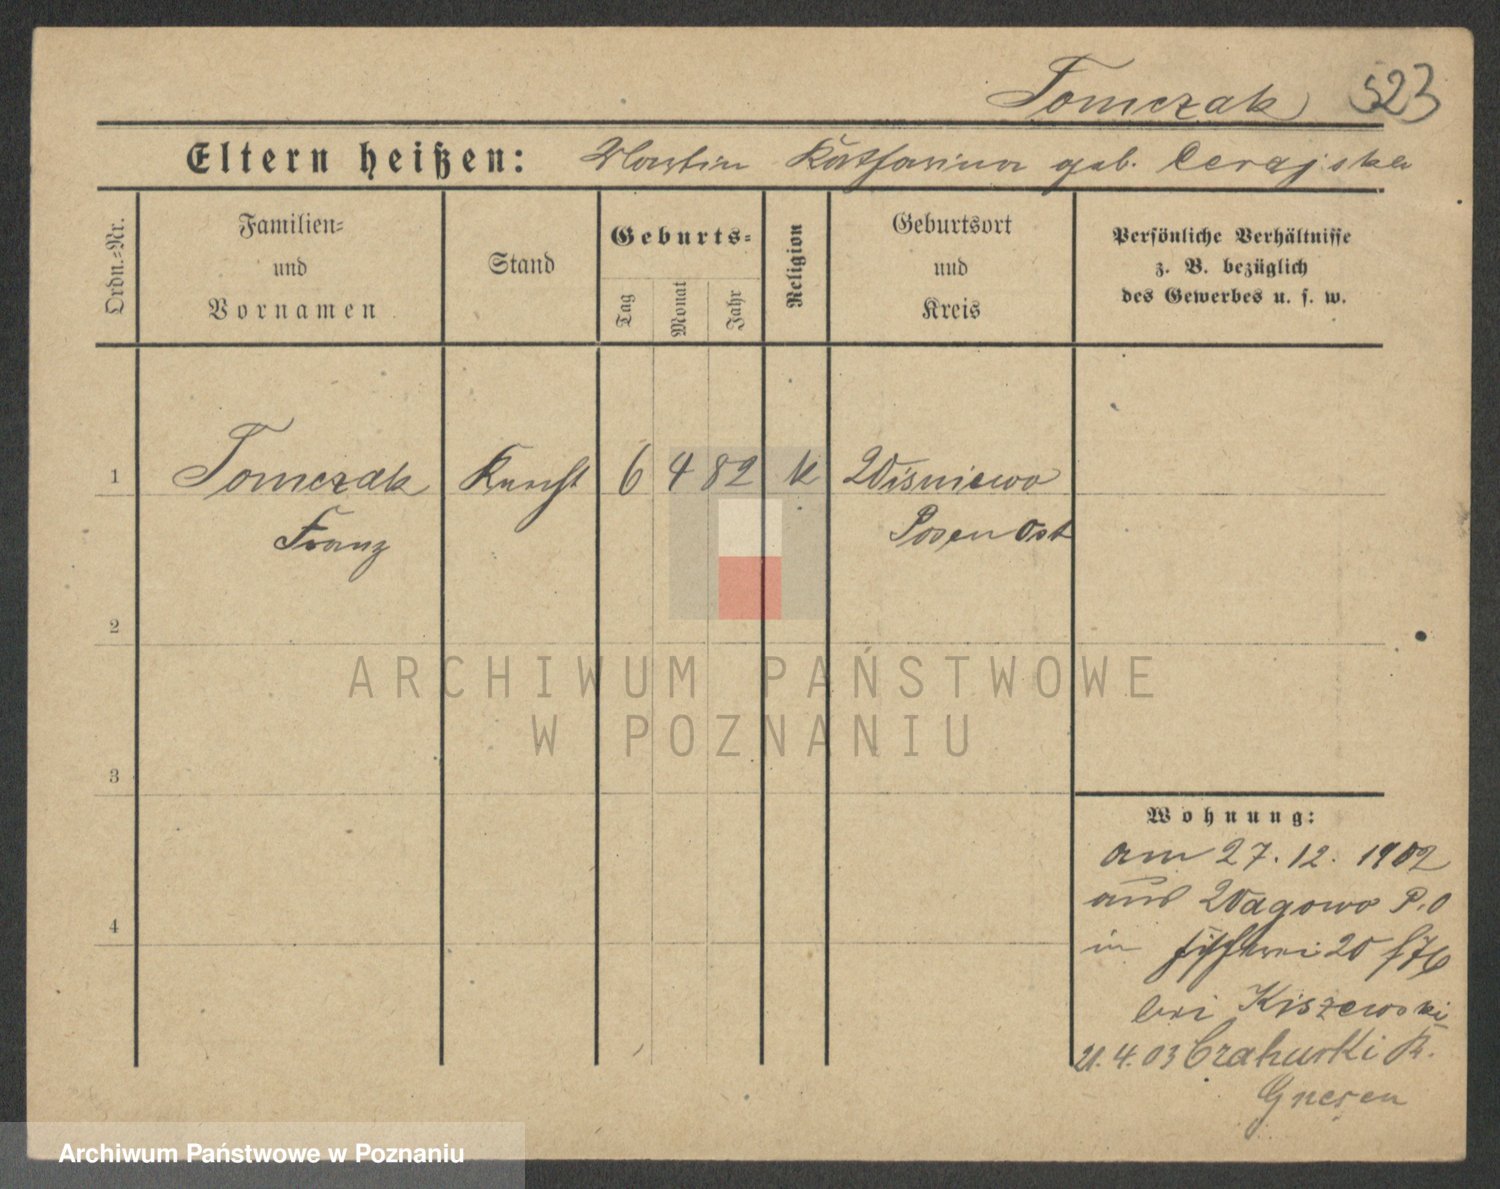 Tomczak 523
Eltern heißen: Martin Katharina geb. Cerajska
Ordn.=Nr.
Familien=
und
Vornamen
Stand
Geburts=
Tag
Monat
Jahr
Religion
Geburtsort
und
Kreis
Persönliche Verhältnisse
z. B. bezüglich
des Gewerbes u. s. w.
1 Tomczak Knecht 6 4 82 k Wiśniewo
Franz Posen Ost
2
3
4
ARCHIWUM PAŃSTWOWE
W POZNANIU
Wohnung:
am 27. 12. 1902
aus Wagowo P. O
in Fischerei 20
bei Kiszewski
21. 4. 03 K.
Gnesen
Archiwum Państwowe w Poznaniu